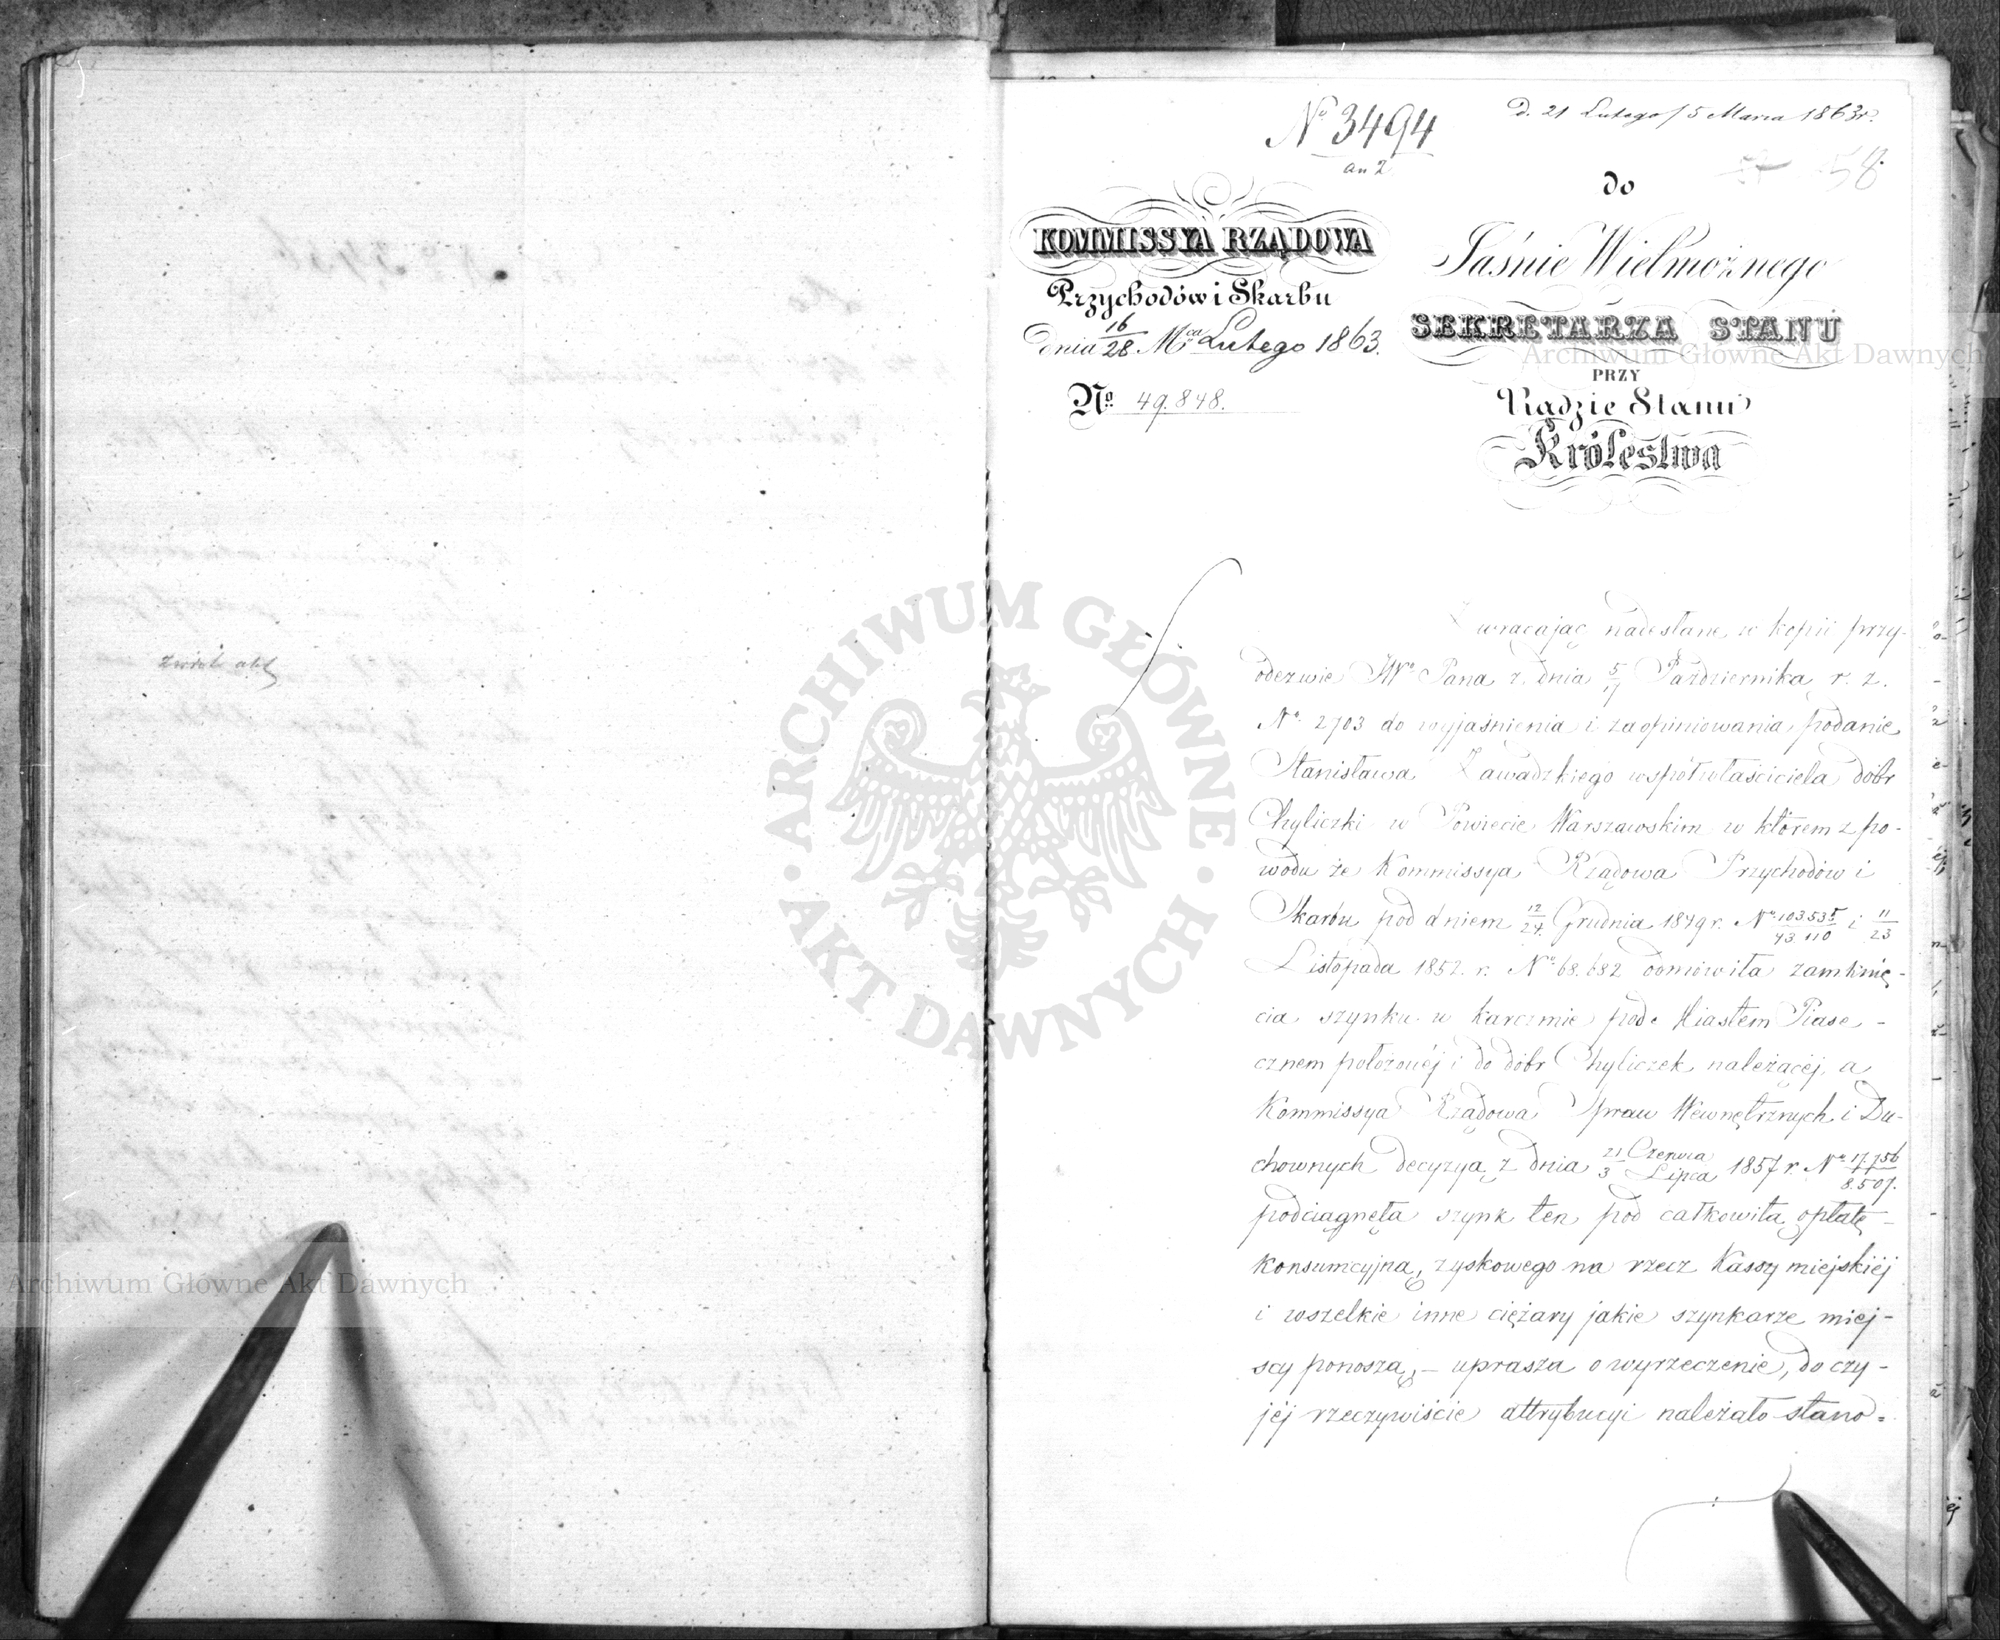 zwrot akt
No 3494
an 2
d. 21 Lutego / 5 Marca 1863 r.
58.
KOMMISSYA RZĄDOWA
Przychodów i Skarbu
dnia 16/28 Mca Lutego 1863.
No 49.848.
do
Jaśnie Wielmożnego
SEKRETARZA STANU
PRZY
Radzie Stanu
Królestwa
Zwracając nadesłane w kopii przy
odezwie JWo Pana z dnia 5/17 Października r. z.
No 2703 do wyjaśnienia i zaopiniowania, podanie
Stanisława Zawadzkiego współwłaściciela dóbr
Chyliczki w Powiecie Warszawskim w którem z po-
wodu że Kommissya Rządowa Przychodów i
Skarbu pod dniem 12/24 Grudnia 1849 r. No 103.535/43.110 i 11/23
Listopada 1852 r. No 68.682 odmówiła zamknię-
cia szynku w karczmie pod Miastem Piase-
cznem położonéj i do dóbr Chyliczek należącéj, a
Kommissya Rządowa Spraw Wewnętrznych i Du-
chownych decyzyą z dnia 21 Czerwca/3 Lipca 1857 r. No 17.756/8.507.
podciągnęła szynk ten pod całkowitą opłatę
konsumcyjną, zyskowego na rzecz Kassy miejskiéj
i wszelkie inne ciężary jakie szynkarze miej-
scy ponoszą, – uprasza o wyrzeczenie, do czy-
jéj rzeczywiście attrybucyi należało stano=
ARCHIWUM GŁÓWNE
AKT DAWNYCH
Archiwum Główne Akt Dawnych
Archiwum Główne Akt Dawnych